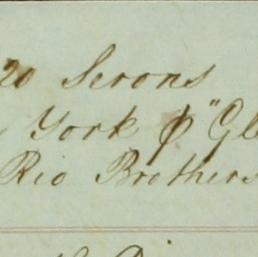 20 Serons
York ꝑ "Gl
Rio Brothers